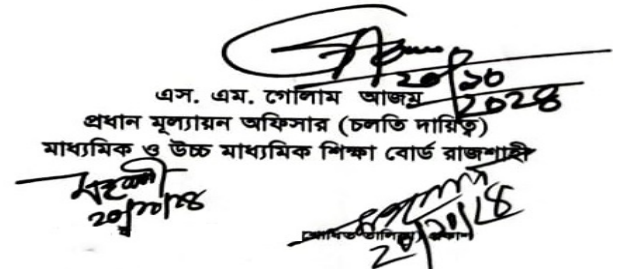 ২০/১০
২০২৪
এস. এম. গোলাম আজম
প্রধান মূল্যায়ন অফিসার (চলতি দায়িত্ব)
মাধ্যমিক ও উচ্চ মাধ্যমিক শিক্ষা বোর্ড রাজশাহী
২০/১০/২৪
২০/১০/২৪